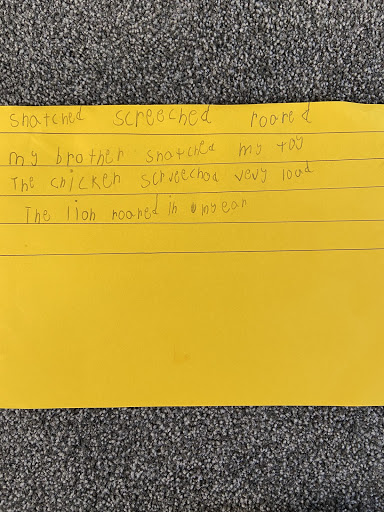 snatched screeched roared
my brother snatched my toy
The chicken scrveechod vevy load
The lion roared in my ear